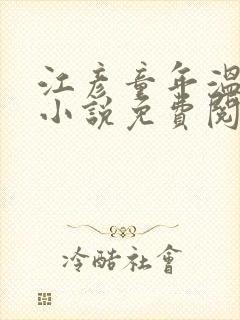 江彥童年溫
小說免費閱
冷酷社會